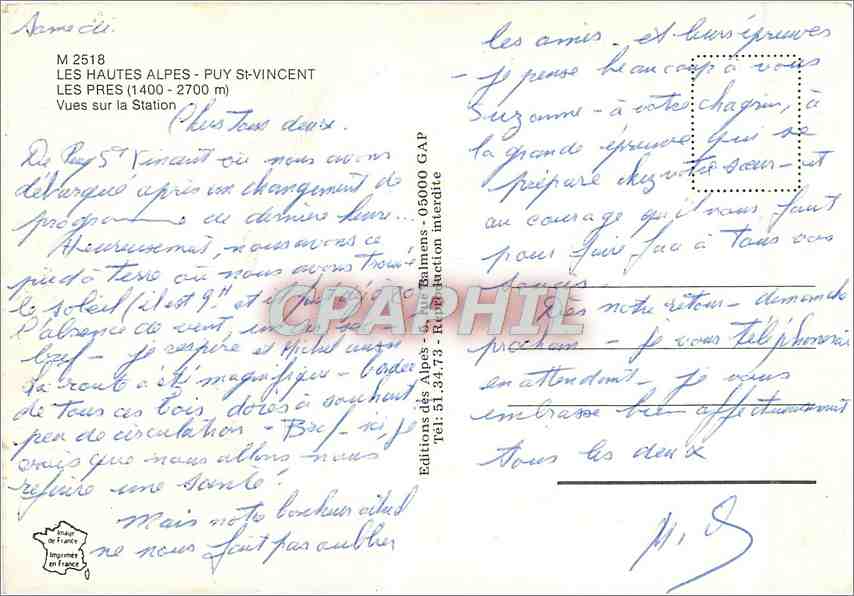 Samedi.
M 2518
LES HAUTES ALPES - PUY St-VINCENT
LES PRES (1400 - 2700 m)
Vues sur la Station
Chers tous deux.
De Puy St Vincent où nous avons
débarqué après un changement de
programme de dernière heure...
Heureusement, nous avons ce
pied à terre où nous avons trouvé
le soleil (il est 9H et il fait
l'absence de vent,
bref - je respire et Michel aussi
La route a été magnifique - bordée
de tous ces bois dorés à souhait
peu de circulation - Bref - ici, je
crois que nous allons nous
refaire une santé!
Mais notre bonheur
ne nous fait pas oublier
Image de France
Imprimée en France
Editions des Alpes - 6, rue Balmens - 05000 GAP
Tél: 51.34.73 - Reproduction interdite
CPAPHIL
les amis - et leurs épreuves
- je pense beaucoup à vous
Suzanne - à votre chagrin, à
la grande épreuve qui se
prépare chez votre sœur - et
au courage qu'il vous faut
pour faire face à tous vos
soucis -
Dès notre retour - dimanche
prochain - je vous téléphonerai
en attendant - je vous
embrasse bien affectueusement
tous les deux